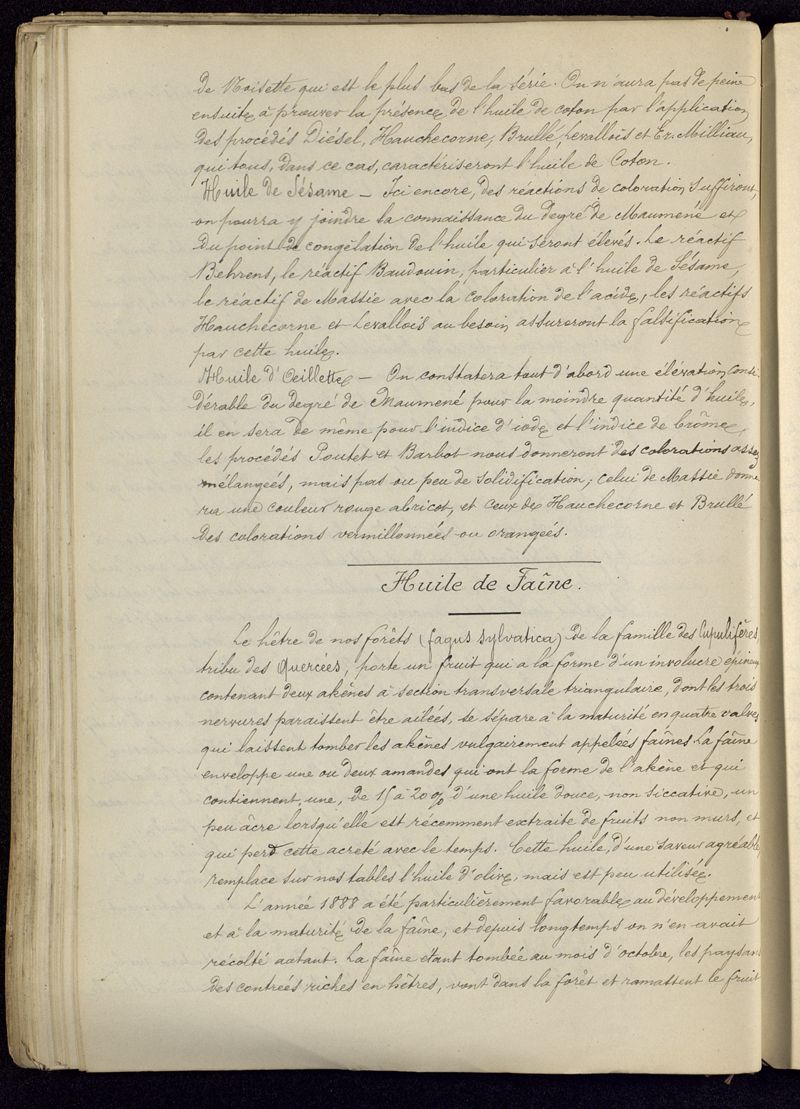 de Noisette qui est le plus bas de la série. On n'aura pas de peine
ensuite à prouver la présence de l'huile de coton par l'application
des procédés Diésel, Hauchecorne, Brullé, Levallois et Er. Milliau,
qui tous, dans ce cas, caractériseront l'huile de Coton.
Huile de Sésame — Ici encore, des réactions de coloration suffiront,
on pourra y joindre la connaissance du degré de Maumené et
du point de congélation de l'huile qui seront élevés. Le réactif
Behrens, le réactif Baudouin, particulier à l'huile de Sésame,
le réactif de Massie avec la coloration de l'acide, les réactifs
Hauchecorne et Levallois au besoin, assureront la falsification
par cette huile.
Huile d'Œillette — On constatera tout d'abord une élévation consi-
dérable du degré de Maumené pour la moindre quantité d'huile,
il en sera de même pour l'indice d'iode et l'indice de brôme,
les procédés Poutet et Barbot nous donneront des colorations assez
mélangées, mais pas ou peu de solidification; celui de Massie donne
ra une couleur rouge abricot, et ceux de Hauchecorne et Brullé
des colorations vermillonnées ou orangées.
Huile de Faîne.
Le hêtre de nos forêts (fagus sylvatica) de la famille des Cupulifères,
tribu des Quercées, porte un fruit qui a la forme d'un involucre épineux
contenant deux akènes à section transversale triangulaire, dont les trois
nervures paraissent être ailées, se sépare à la maturité en quatre valves
qui laissent tomber les akènes vulgairement appelées faînes. La faîne
enveloppe une ou deux amandes qui ont la forme de l'akène et qui
contiennent une, de 15 à 20% d'une huile douce, non siccative, un
peu âcre lorsqu'elle est récemment extraite de fruits non murs, et
qui perd cette acreté avec le temps. Cette huile, d'une saveur agréable
remplace sur nos tables l'huile d'olive, mais est peu utilisée.
L'année 1888 a été particulièrement favorable au développement
et à la maturité de la faîne, et depuis longtemps on n'en avait
récolté autant. La faîne étant tombée au mois d'octobre, les paysans
des contrées riches en hêtres, vont dans la forêt et ramassent le fruit